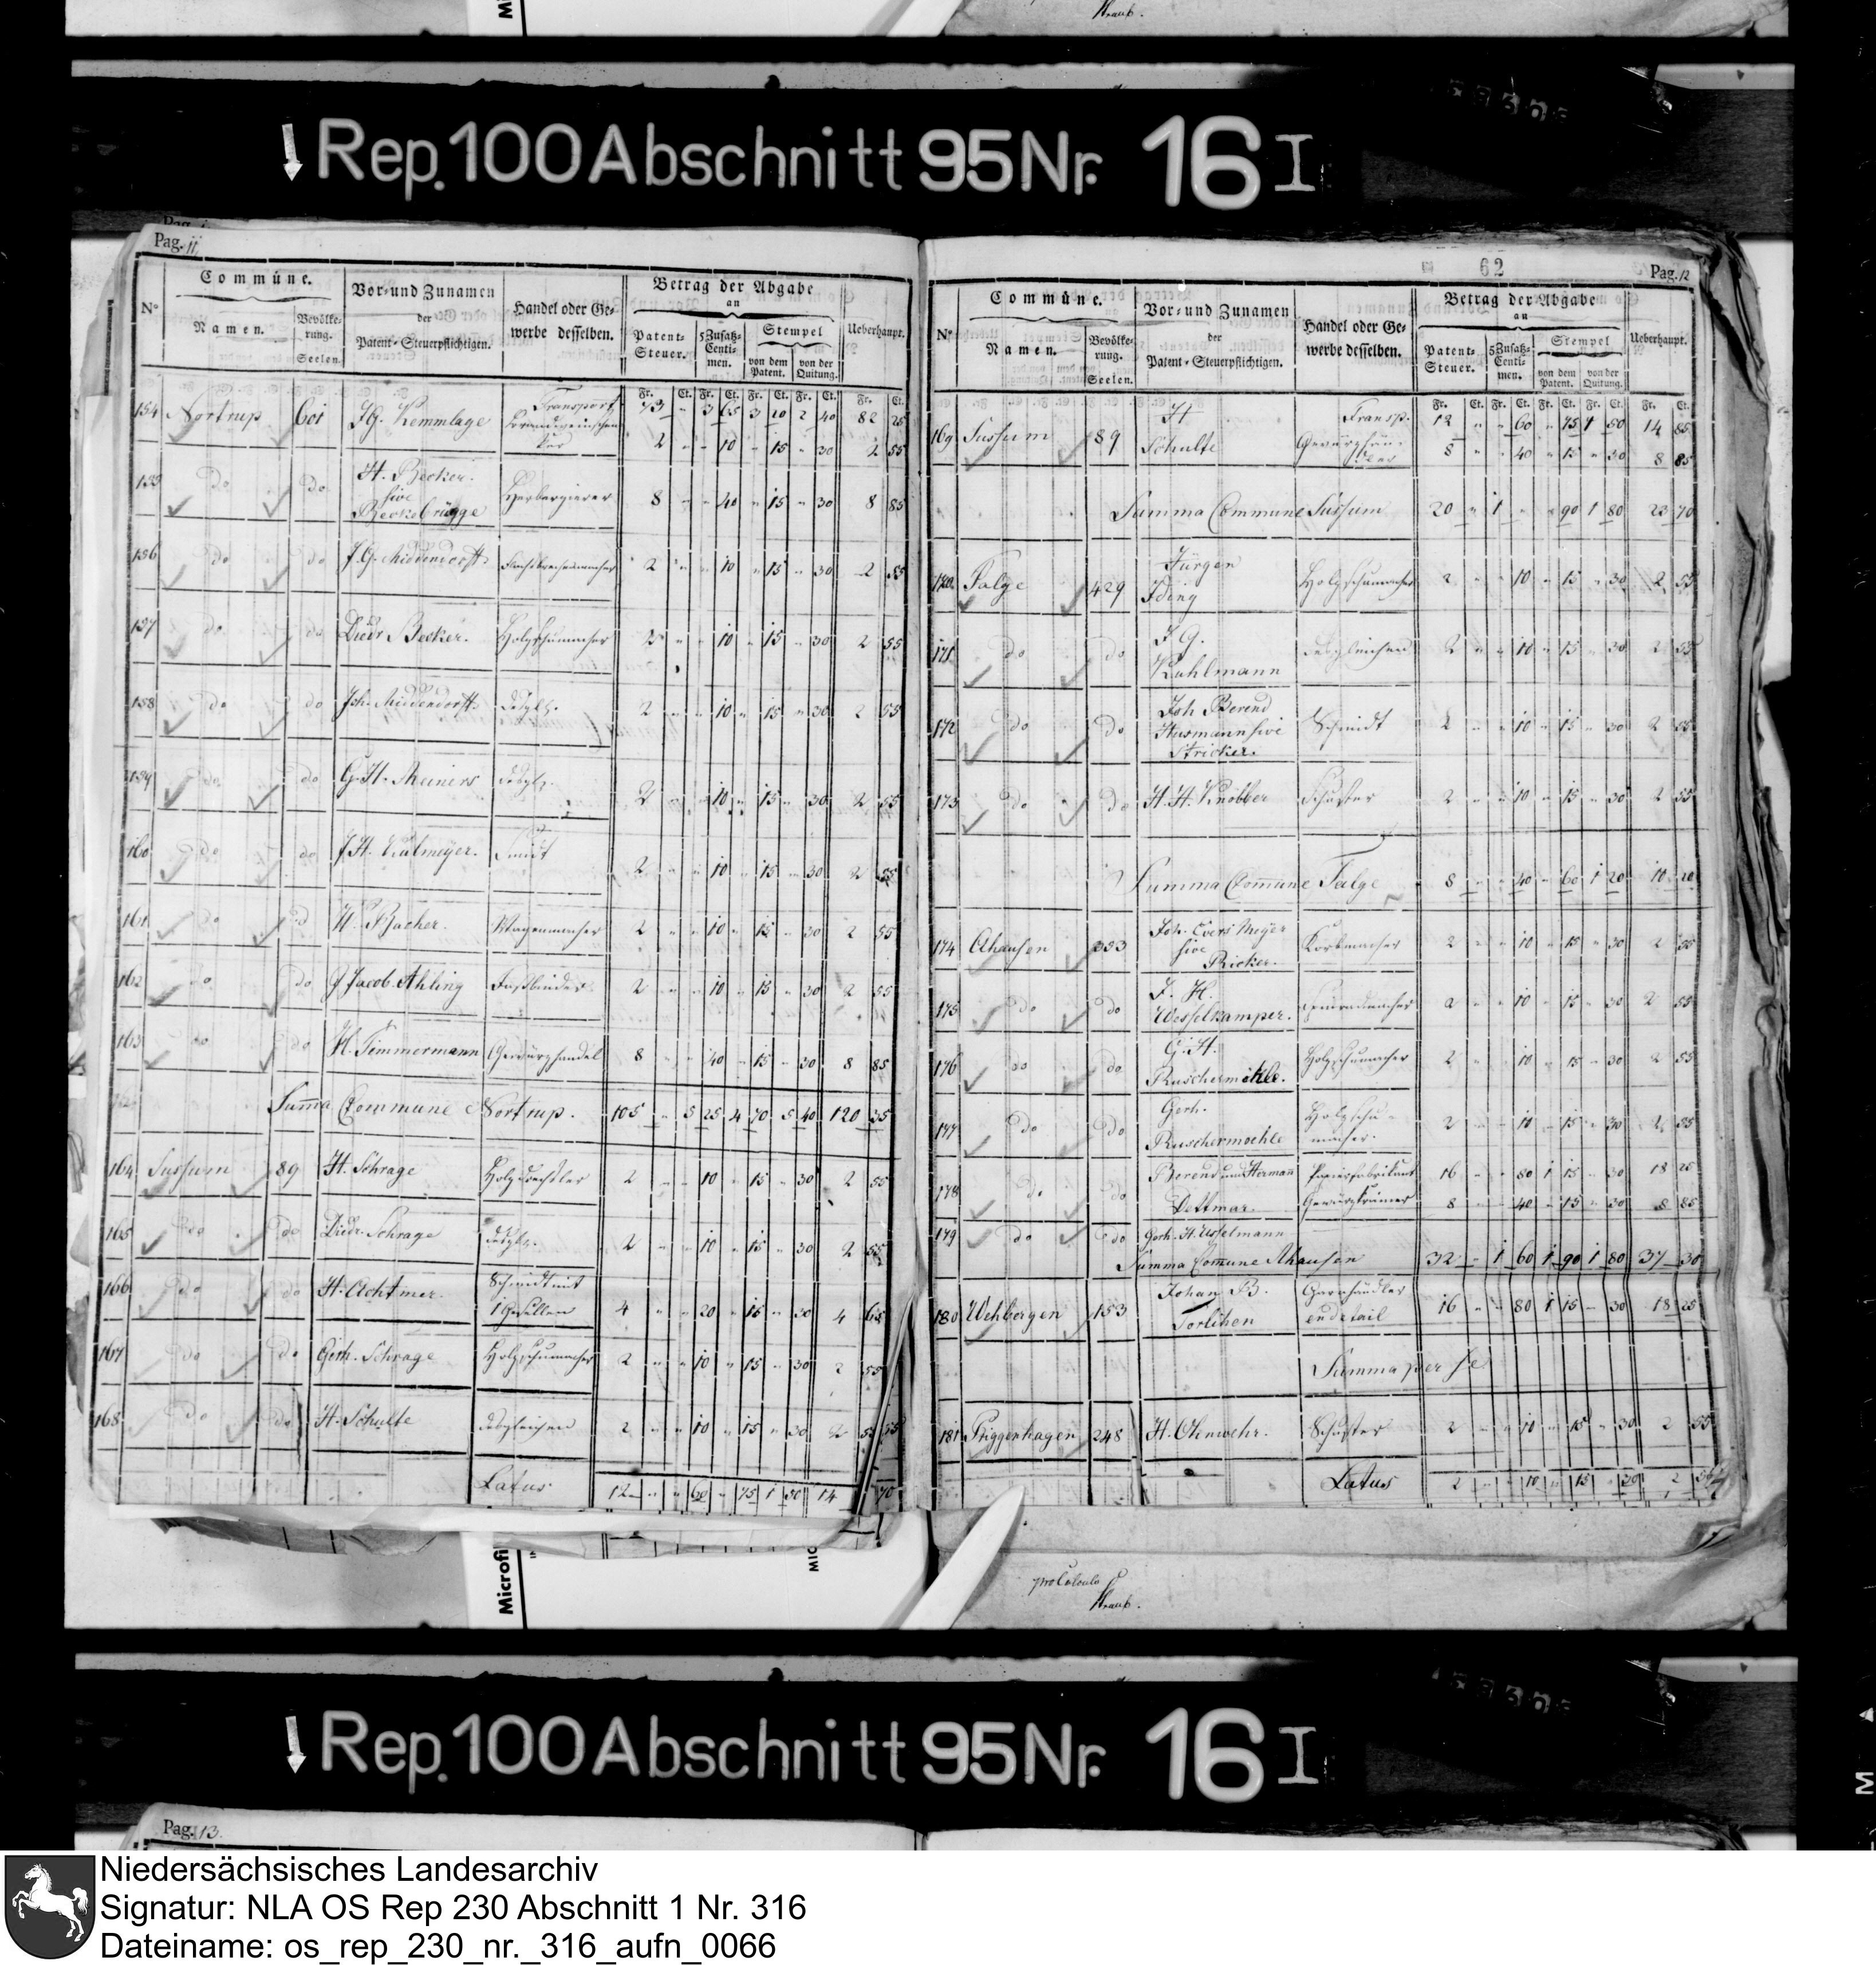 Straub.
↓ Rep. 100 Abschnitt 95 Nr. 16 I
Pag. 11
N° Commüne. Namen. Bevölkerung. Seelen. Vor- und Zunamen der Patent-Steuerpflichtigen. Handel oder Gewerbe desselben. Betrag der Abgabe an Patent-Steuer. 5 Zusatz-Centimen. Stempel von dem Patent. von der Quitung. Ueberhaupt.
Fr. Ct. Fr. Ct. Fr. Ct. Fr. Ct. Fr. Ct.
154 Nortrup 601 JG. Kemmlage Transport 73 " 3 65 3 20 2 40 82 25
2 " " 10 " 15 " 30 2 55
155 do do H. Becker sive Beckebrügge Herbergierer 8 " " 40 " 15 " 30 8 85
156 do do J. G. Middendorff 2 " " 10 " 15 " 30 2 55
157 do do Diedr Becker. Holzschumacher 2 " " 10 " 15 " 30 2 55
158 do do Joh. Middendorff desgl. 2 " " 10 " 15 " 30 2 55
159 do do G. H. Meiners desgl. 2 " " 10 " 15 " 30 2 55
160 do do J H. 2 " " 10 " 15 " 30 2 55
161 do do Wagenmacher 2 " " 10 " 15 " 30 2 55
162 do do J Jacob Ahling Fassbinder 2 " " 10 " 15 " 30 2 55
163 do do H. Timmermann Gewürzhandel 8 " " 40 " 15 " 30 8 85
Summa Commune Nortrup. 105 " 5 25 4 70 5 40 120 35
164 Sussum 89 H. Schrage Holzdrechsler 2 " " 10 " 15 " 30 2 55
165 do do Diedr. Schrage desgl. 2 " " 10 " 15 " 30 2 55
166 do do H. Achtmer. Schmidt mit 1 Gesellen 4 " " 20 " 15 " 30 4 65
167 do do Gerh. Schrage Holzschumacher 2 " " 10 " 15 " 30 2 55
168 do do H. Schulte desgleichen 2 " " 10 " 15 " 30 2 55
Latus 12 " " 60 " 75 1 50 14
62
Pag. 12
N° Commüne. Namen. Bevölkerung. Seelen. Vor- und Zunamen der Patent-Steuerpflichtigen. Handel oder Gewerbe desselben. Betrag der Abgabe an Patent-Steuer. 5 Zusatz-Centimen. Stempel von dem Patent. von der Quitung. Ueberhaupt.
Fr. Ct. Fr. Ct. Fr. Ct. Fr. Ct. Fr. Ct.
Transp. 12 " " 60 " 75 1 50 14 85
169 Sussum 89 H Schulte Gewürzhändler 8 " " 40 " 15 " 30 8 85
Summa Commune Sussum 20 " 1 " " 90 1 80 23 70
170 Talge 429 Jürgen Iding Holzschumacher 2 " " 10 " 15 " 30 2 55
171 do do J G. Kuhlmann desgleichen 2 " " 10 " 15 " 30 2 55
172 do do Joh Berend Husmann sive Stricker. Schmidt 2 " " 10 " 15 " 30 2 55
173 do do H. H. Knobber Schuster 2 " " 10 " 15 " 30 2 55
Summa Commune Talge 8 " " 40 " 60 1 20 10 20
174 Ahausen 353 Joh. Evers Meyer sive Ricker. Korbmacher 2 " " 10 " 15 " 30 2 55
175 do do J. H. Wesselkamper. 2 " " 10 " 15 " 30 2 55
176 do do G. H. Ruschermöhle. Holzschumacher 2 " " 10 " 15 " 30 2 55
177 do do Gerh. Ruschermoehle Holzschumacher. 2 " " 10 " 15 " 30 2 55
178 do do Berend und Hermann Dettmar. Papierfabrikant 16 " " 80 1 15 " 30 18 25
Gewürzkrämer 8 " " 40 " 15 " 30 8 85
179 do do Gerh. H.
Summa Commune Ahausen 32 " 1 60 1 90 1 80 37 30
180 Wehbergen 153 Johan B. Garnhändler en detail 16 " " 80 1 15 " 30 18 25
Summa per se
181 Priggenhagen 248 H. Ohnwehr. Schuster 2 " " 10 " 15 " 30 2 55
Latus 2 " " 10 " 15 " 30 2 55
Microfi
pro Calculo
Straub.
↓ Rep. 100 Abschnitt 95 Nr. 16 I
Pag. 13.
Niedersächsisches Landesarchiv
Signatur: NLA OS Rep 230 Abschnitt 1 Nr. 316
Dateiname: os_rep_230_nr._316_aufn_0066